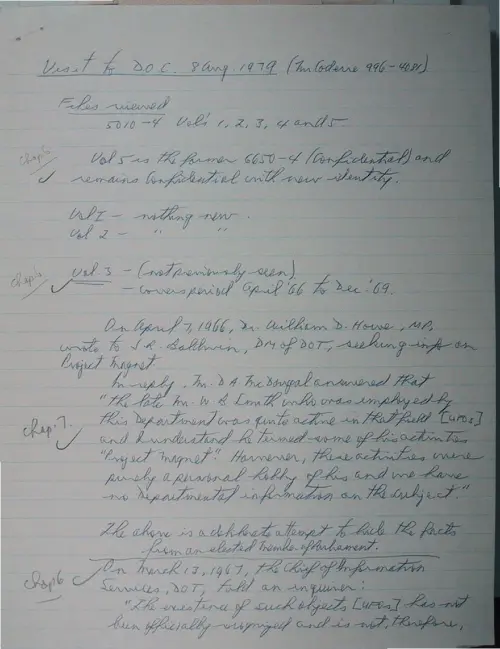 Visit to D.O.C. 8 Aug. 1979 (Mr Coderre 996-4081)
Files viewed
5010-4 Vol's 1, 2, 3, 4 and 5
Chap 6
Vol 5 is the former 6650-4 (Confidential) and
remains Confidential with new identity.
Vol I - nothing new.
Vol 2 - " "
Chap 6
Vol 3 - (not previously seen)
- covers period April '66 to Dec. '69.
On April 7, 1966, Dr. William D. Howe, MP,
wrote to J.R. Baldwin, DM of DOT, seeking info on
Project Magnet.
In reply, Mr. D A McDougal answered that
"the late Mr. W B Smith who was employed by
Chap 7.
this Department was quite active in that field [UFOs]
and I understand he termed some of his activities
"Project Magnet". However, these activities were
purely a personal hobby of his and we have
no Departmental information on the subject."
The above is a deliberate attempt to hide the facts
from an elected member of Parliament.
Chap 6
On March 13, 1967, the Chief of Information
Services, DOT, told an inquirer:
"The existence of such objects [UFOs] has not
been officially recognized and is not, therefore,